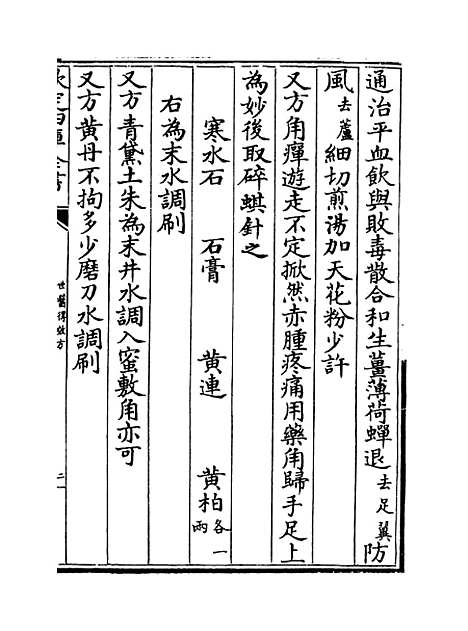 通治平血飲與敗毒散合和生薑薄荷蟬退去足翼防
風去蘆細切煎湯加天花粉少許
又方角癉遊走不定掀然赤腫疼痛用藥角歸手足上
為妙後取碎蜞針之
寒水石　石膏　黄連　黄柏各一兩
右為末水調刷
又方青黛土朱為末井水調入蜜敷角亦可
又方黄丹不拘多少磨刀水調刷
欽定四庫全書
世醫得效方